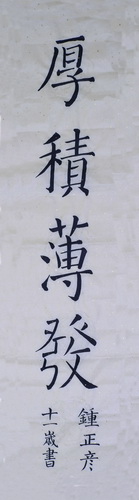 厚積薄發
鍾正彦
十一歲書